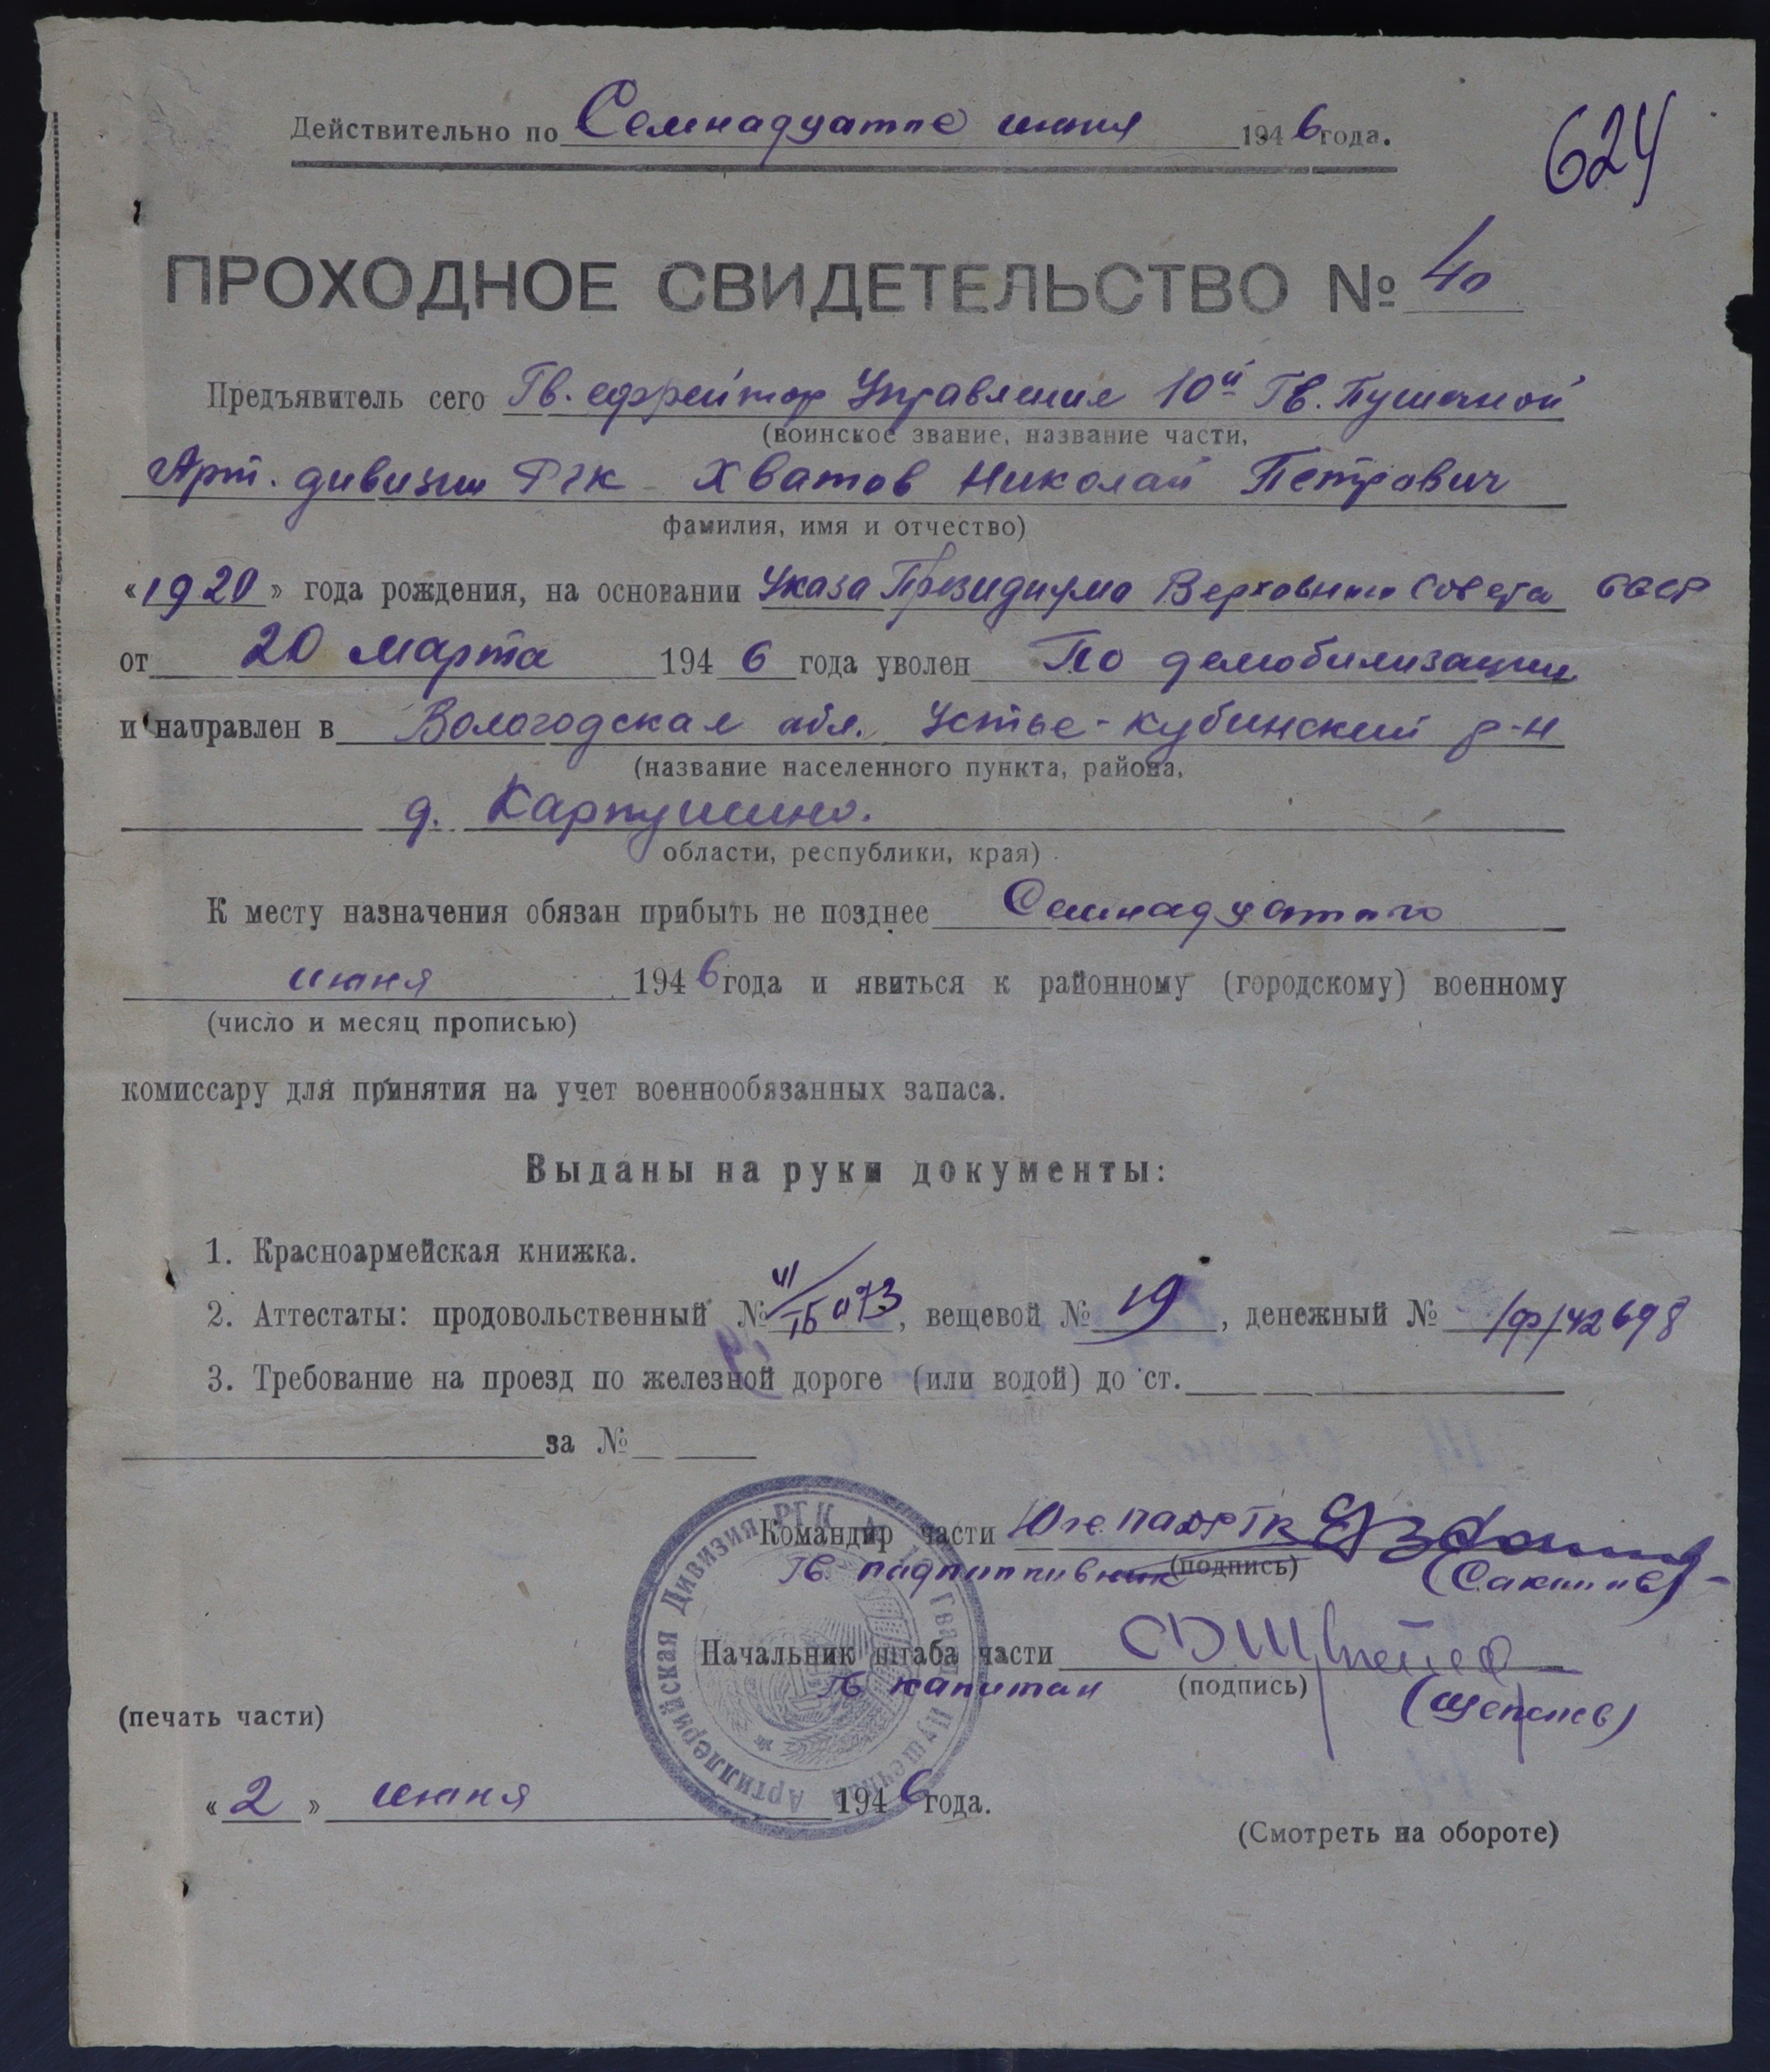 Действительно по Семнадцатое июня 1946 года.
624
ПРОХОДНОЕ СВИДЕТЕЛЬСТВО № 40
Предъявитель сего Гв. ефрейтор Управления 10й Гв. Пушечной
(воинское звание, название части,
Арт. дивизии РГК Хватов Николай Петрович
фамилия, имя и отчество)
«1920» года рождения, на основании Указа Президиума Верховного Совета СССР
от 20 марта 1946 года уволен По демобилизации
и направлен в Вологодская обл. Устье-Кубинский р-н
(название населенного пункта, района,
д. Карпушино.
области, республики, края)
К месту назначения обязан прибыть не позднее Семнадцатого
июня 1946 года и явиться к районному (городскому) военному
(число и месяц прописью)
комиссару для принятия на учет военнообязанных запаса.
Выданы на руки документы:
1. Красноармейская книжка.
2. Аттестаты: продовольственный №, вещевой № 19, денежный № /ф/42698
3. Требование на проезд по железной дороге (или водой) до ст.
за №
Командир части 10 гв. ПАД РГК
Гв. подполковник (подпись)
Начальник штаба части
Гв капитан (подпись)
(печать части)
Гвард. Пушечная Артиллерийская Дивизия РГК
«2» июня 1946 года.
(Смотреть на обороте)